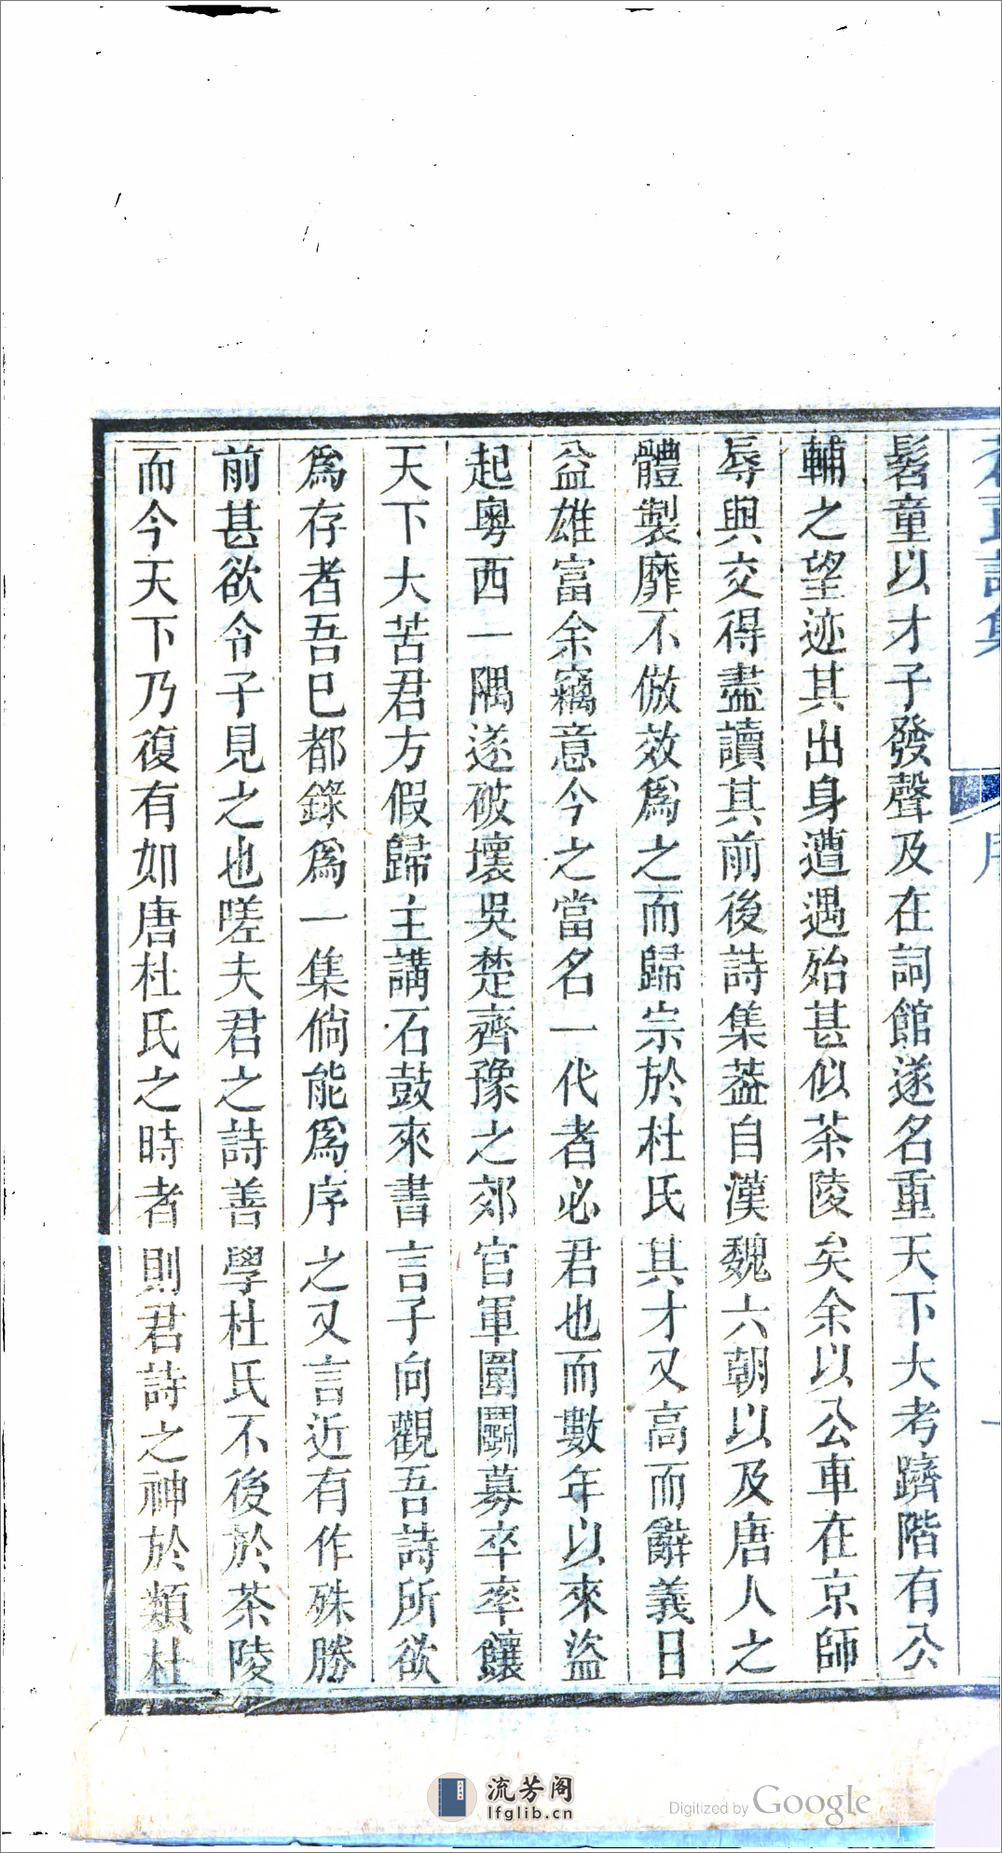 髫童以才子發聲及在詞館遂名重天下大考躋階有公
輔之望迹其出身遭遇始甚似茶陵矣余以公車在京師
辱與交得盡讀其前後詩集葢自漢魏六朝以及唐人之
體製靡不倣效爲之而歸宗於杜氏其才又高而辭義日
益雄富余竊意今之當名一代者必君也而數年以來盜
起粵西一隅遂破壞吳楚齊豫之郊官軍圍鬭募卒率饟
天下大苦君方假歸主講石鼓來書言子向觀吾詩所欲
爲存者吾巳都錄爲一集倘能爲序之又言近有作殊勝
前甚欲令子見之也嗟夫君之詩善學杜氏不後於茶陵
而今天下乃復有如唐杜氏之時者則君詩之神於類杜
流芳阁
lfglib.cn
Digitized by Google